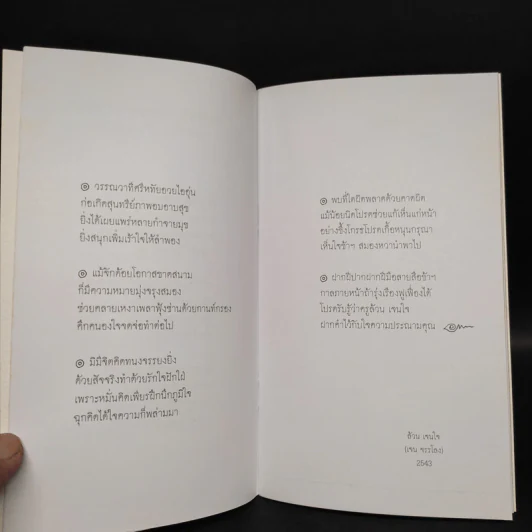 ๏ วรรณวาทีศรีหทัยอวยไออุ่น
ก่อเกิดสุนทรีย์ภาพอมอาบสุข
ยิ่งได้เผยแพร่หลายกำจายมุข
ยิ่งสนุกเพิ่มเร้าใจให้ลำพอง
๏ แม้จักด้อยโอกาสขาดสนาม
ก็มีความหมายมุ่งจรุงสมอง
ช่วยคลายเหงาเพลาฟุ้งซ่านด้วยกานท์กรอง
คึกคนองใจจดจ่อทำต่อไป
๏ มิมีจิตคิดทนงจรรยงยิ่ง
ด้วยสัจจริงทำด้วยรักใจฝักใฝ่
เพราะหมั่นคิดเพียรฝึกนึกภูมิใจ
ฉุกคิดได้ใจความก็พล่ามมา
๏ พบที่ใดผิดพลาดด้วยคาดผิด
แม้น้อยนิดโปรดช่วยแก้เห็นแก่หน้า
อย่างซึ้งโกรธโปรดเกื้อหนุนกรุณา
เห็นใจข้าฯ สมองหวานำพาไป
๏ ฝากฝีปากฝากฝีมือลายสือข้าฯ
กาลภายหน้าถ้ารุ่งเรืองฟูเฟื่องได้
โปรดรับรู้ว่าครูล้วน เจนใจ
ฝากคำไว้กับใจความประณามคุณ
ล้วน เจนใจ
(เจน จรรโลง)
2543